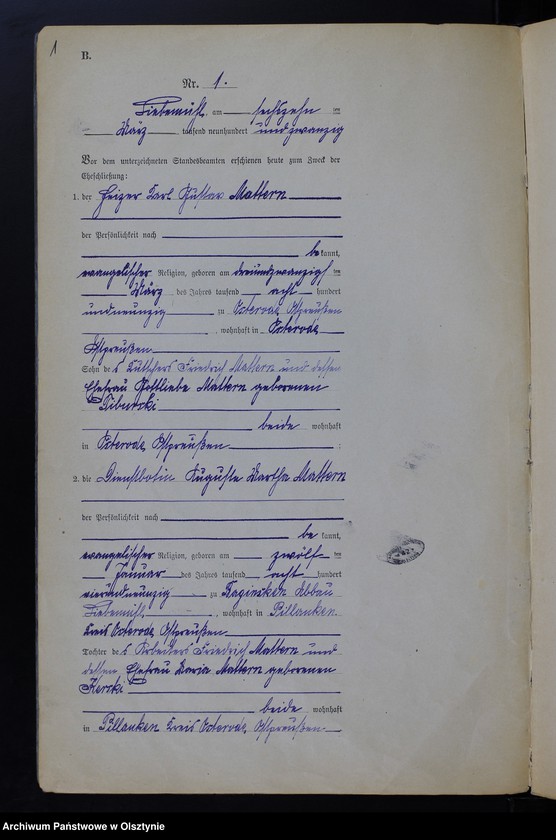 1
B.
Nr. 1.
Liebemühl, am sechszehn ten
März tausend neunhundert undzwanzig
Vor dem unterzeichneten Standesbeamten erschienen heute zum Zweck der
Eheschließung:
1. der Heizer Karl Gustav Mattern
der Persönlichkeit nach
bekannt,
evangelischer Religion, geboren am dreiundzwanzigsten
März des Jahres tausend acht hundert
undneunzig zu Osterode Ostpreußen
, wohnhaft in Osterode
Ostpreußen
Sohn des Kutschers Friedrich Mattern und dessen
Ehefrau Gottliebe Mattern geborenen
beide wohnhaft
in Osterode Ostpreußen :
2. die Dienstbotin Auguste Martha Mattern
der Persönlichkeit nach
bekannt,
evangelischer Religion, geboren am zwölf ten
Januar des Jahres tausend acht hundert
vierundneunzig zu Abbau
Liebemühl, wohnhaft in Pillauken
Kreis Osterode Ostpreußen
Tochter des Arbeiters Friedrich Mattern und
dessen Ehefrau Maria Mattern geborenen
beide wohnhaft
in Pillauken Kreis Osterode Ostpreußen
Archiwum Państwowe w Olsztynie